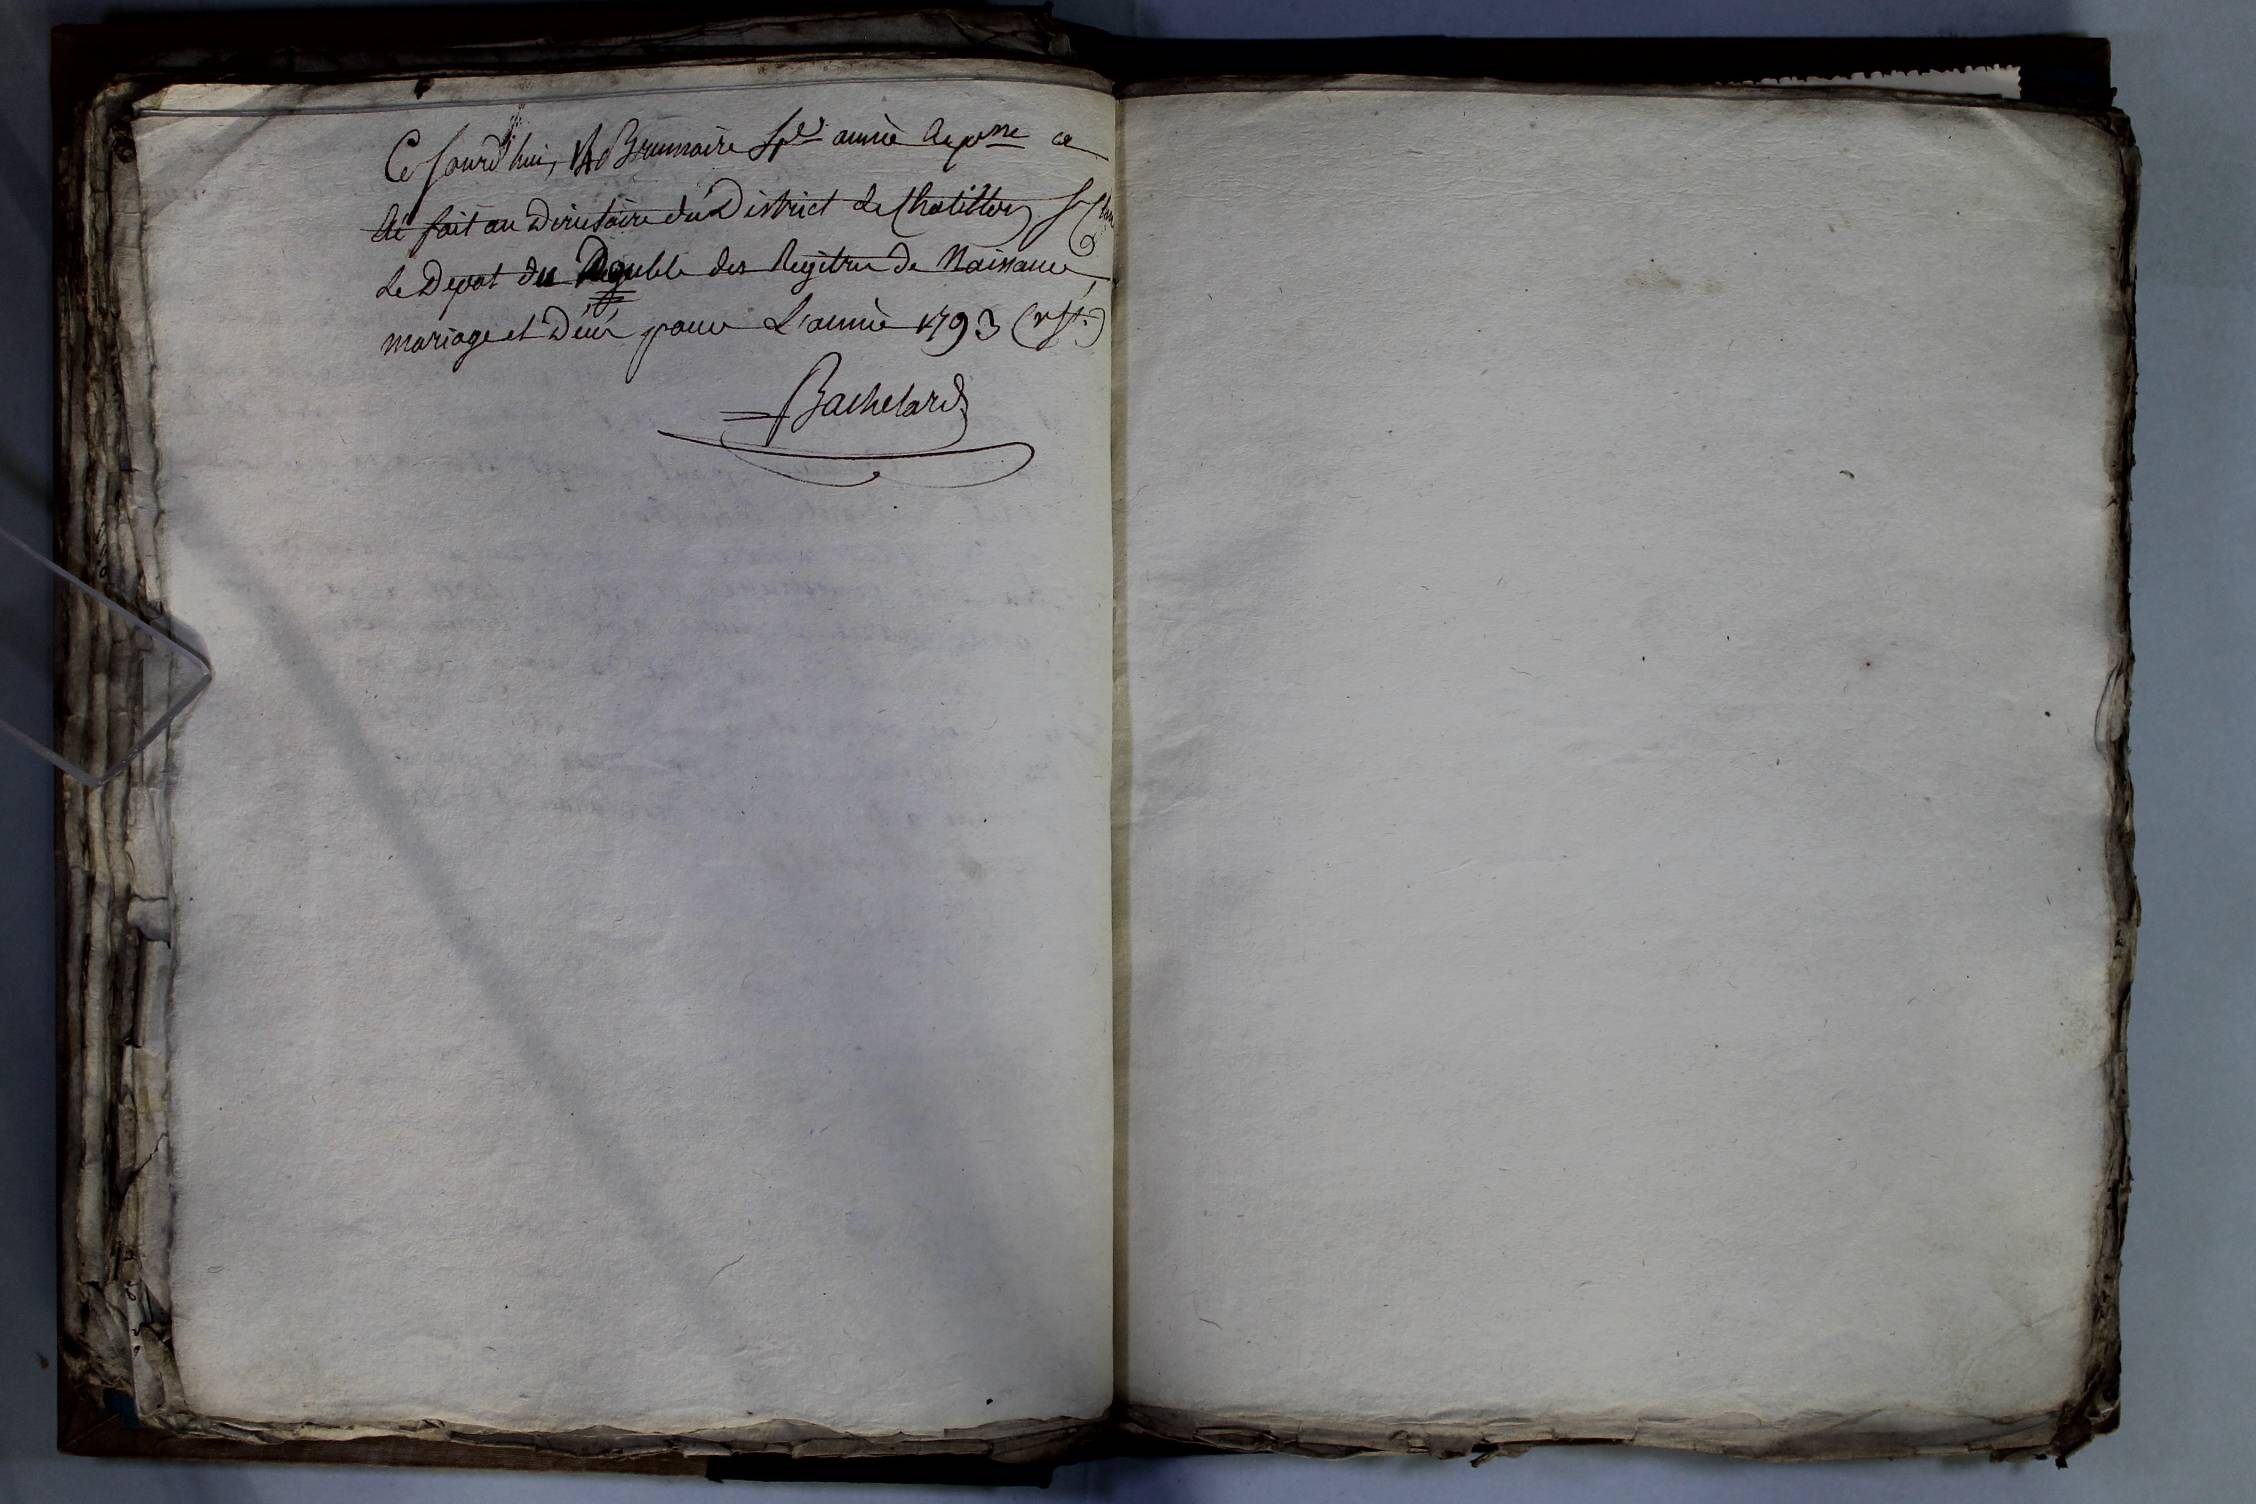 Ce jourd'hui, 14 Brumaire année Repne a
été fait au Directoire du District de Chatillon
Le Depot du Double des Registres de Naissance
mariage et Décés pour L'année 1793 (v. st.)
Bachelard